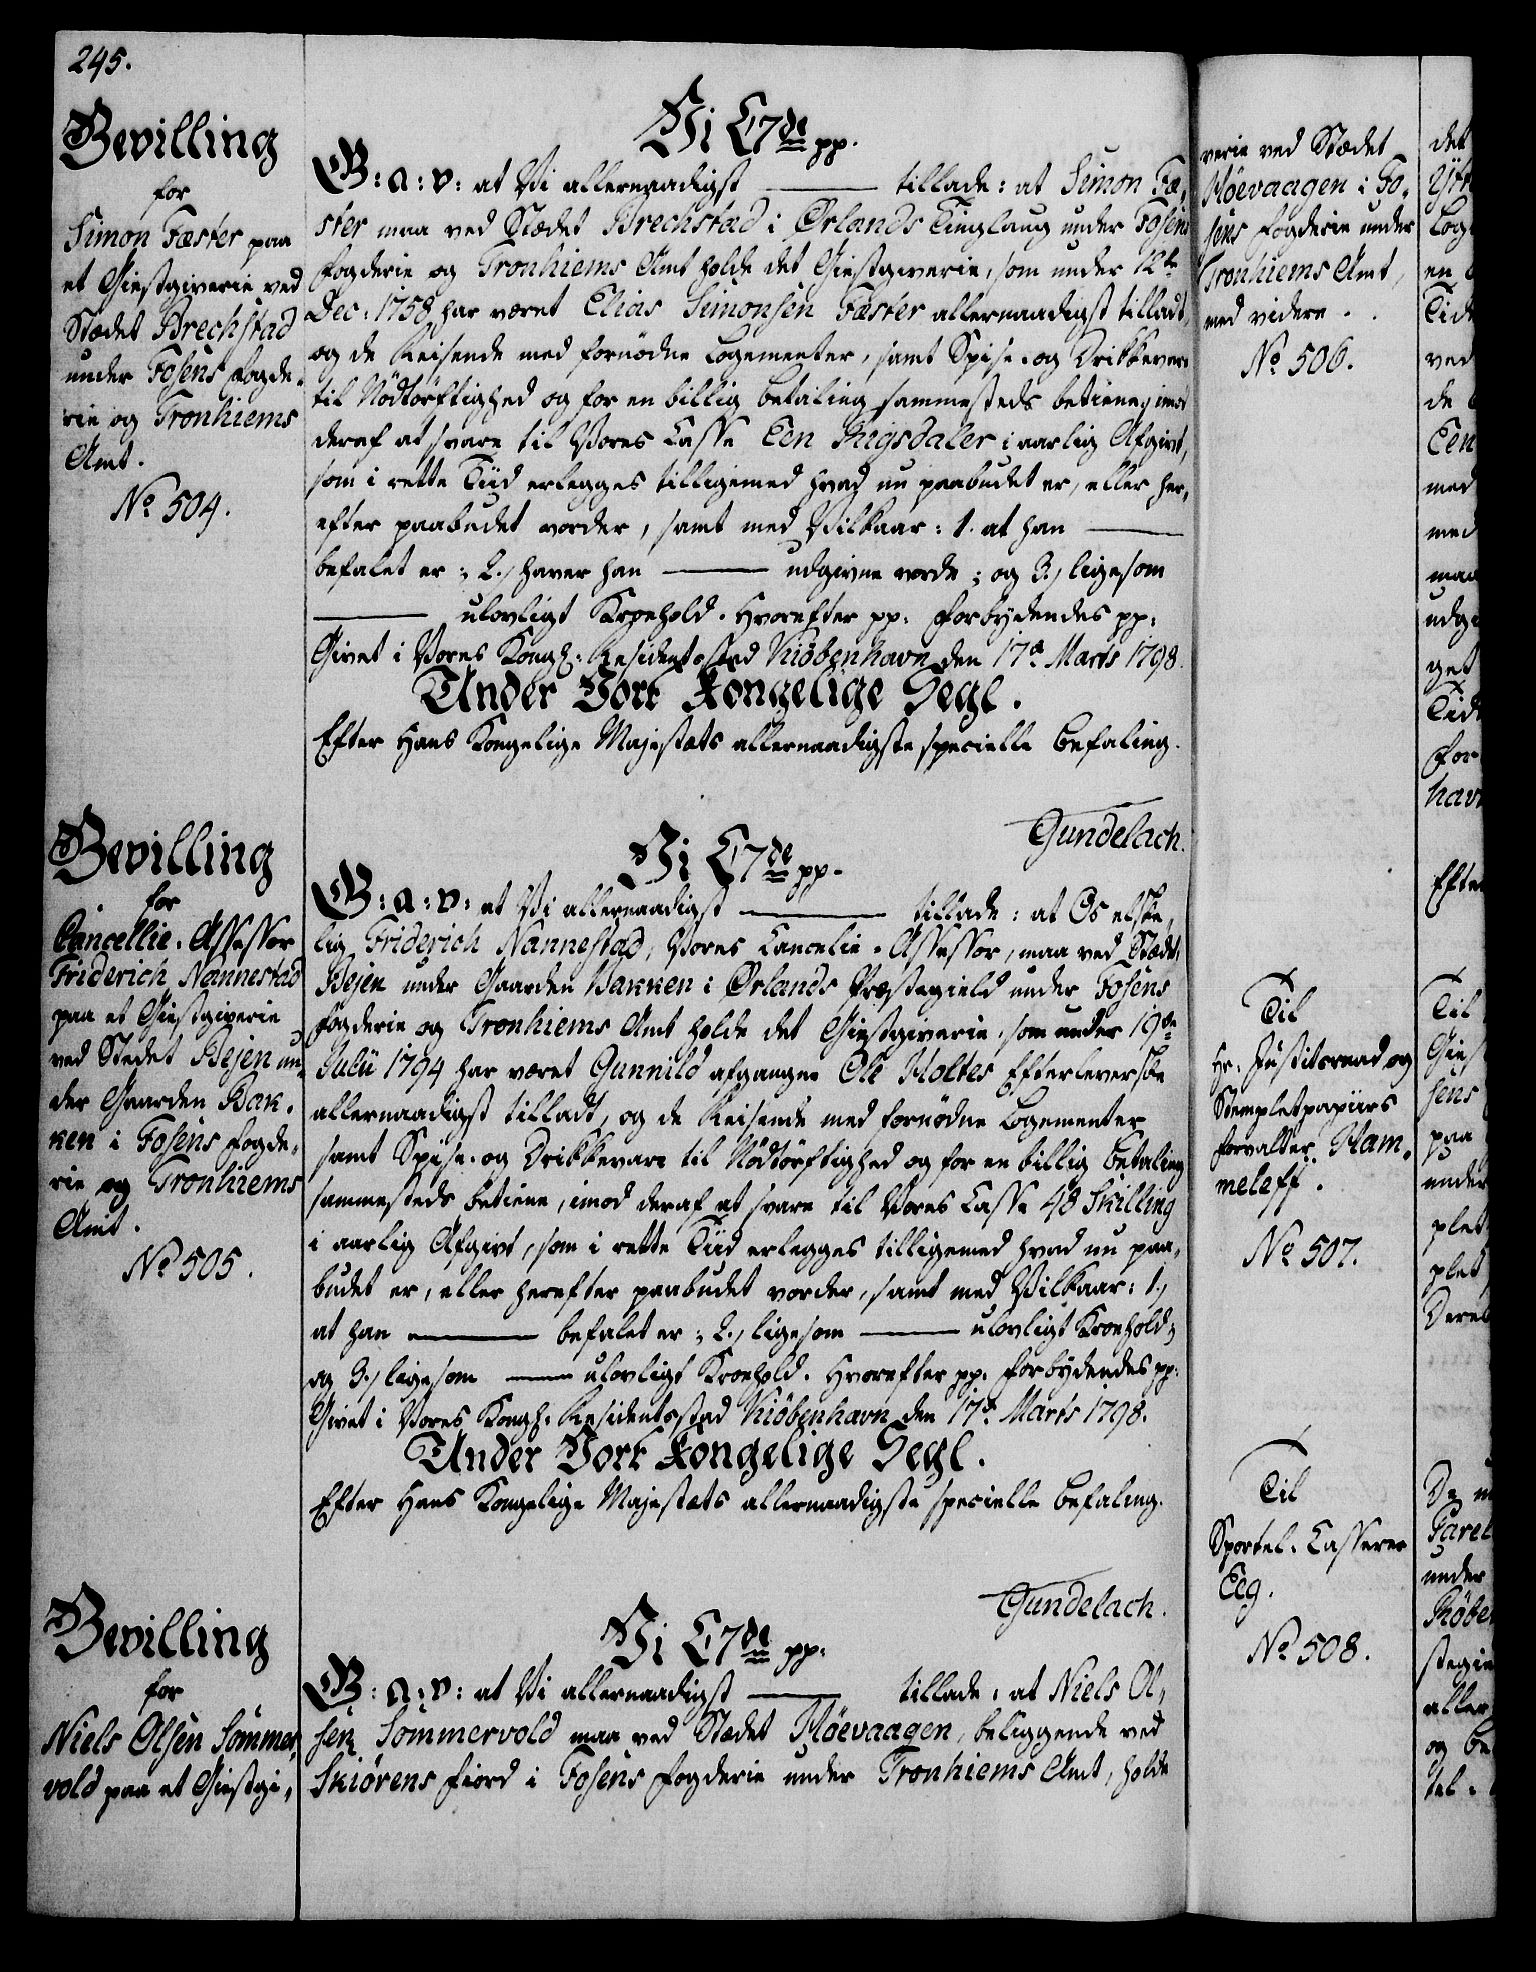 245.
Bevilling
for
Simon Fæster paa
et Giestgiverie ved
Stædet Brechstad
under Fosens Fogde-
rie og Tronhiems
Amt.
No 504.
Vi C7de pp.
G: A: V: at Vi allernaadigst ——— tillade: at Simon Fæ-
ster maa ved Stædet Brechstad i Ørlands Tinglaug under Fosens
Fogderie og Tronhiems Amt holde det Giestgiverie, som under 12te
Dec: 1758 har været Elias Simonsen Fæster allernaadigst tilladt,
og de Reisende med fornødne Logementer, samt Spise- og Drikkevare
til Nödtörftighed og for en billig Betaling sammesteds betiene, imod
deraf at svare til Vores Casse Een Rigsdaler i aarlig Afgivt,
som i rette Tiid erlegges tilligemed hvad nu paabudet er, eller her-
efter paabudet vorder, samt med Vilkaar: 1. at han ———
befalet er; 2., haver han ——— udgivne vorde; og 3., ligesom
——— ulovligt Kroehold. Hvorefter pp. Forbydendes pp:
Givet i Vores Kongl: Residentsstad Kiöbenhavn den 17de Marts 1798.
Under Vort Kongelige Segl.
Efter Hans Kongelige Majestæts allernaadigste specielle Befaling.
Gundelach.
Bevilling
for
Cancellie-Assessor
Friderich Nannestad
paa et Giestgiverie
ved Stedet Bejen un-
der Gaarden Bak-
ken i Fosens Fogde-
rie og Tronhiems
Amt.
No 505.
Vi C7de pp.
G: A: V: at Vi allernaadigst ——— tillade: at Os elske-
lig Friderich Nannestad, Vores Cancelie-Assessor, maa ved Stædet
Bejen under Gaarden Bakken i Ørlands Præstegield under Fosens
Fogderie og Tronhiems Amt holde det Giestgiverie, som under 19de
Julii 1794 har været Gunnild afgangne Ole Holtes Efterleverske
allernaadigst tilladt, og de Reisende med fornødne Logementer
samt Spise- og Drikkevare til Nödtörftighed og for en billig Betaling
sammesteds betiene, imod deraf at svare til Vores Casse 48 Skilling
i aarlig Afgivt, som i rette Tiid erlegges tilligemed hvad nu paa-
budet er, eller herefter paabudet vorder, samt med Vilkaar: 1.,
at han ——— befalet er; 2., ligesom ——— ulovligt Kroehold;
og 3., ligesom ——— ulovligt Kroehold. Hvorefter pp. Forbydendes pp:
Givet i Vores Kongl: Residentsstad Kiöbenhavn den 17de Marts 1798.
Under Vort Kongelige Segl.
Efter Hans Kongelige Majestæts allernaadigste specielle Befaling.
Gundelach.
Bevilling
for
Niels Olsen Sommer-
vold paa et Giestgi-
Vi C7de pp:
G: A: V: at Vi allernaadigst ——— tillade: at Niels Ol-
sen Sommervold maa ved Stædet Höevaagen, beliggende ved
Skiörens Fiord i Fosens Fogderie under Tronhiems Amt, holde
verie ved Stædet
Höevaagen i Fo-
sens Fogderie under
Tronhiems Amt,
med videre.
No 506.
Til
Hr. Justitsraad og
Stempletpapiirs
Forvalter Ham-
meleff.
No 507.
Til
Sportel-Casserer
Eeg.
No 508.
det
Log
en
Tid
ved
de
Een
med
med
maa
udgi
get
Tid
For
havn
Efter
Til
Gies
sens
paa
under
plet
plet
Deres
De
under
Kiöbe
stegi
aller
og be
tel.